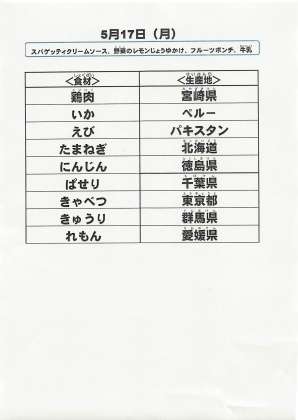 5月17日（月）
スパゲッティクリームソース、野菜のレモンじょうゆかけ、フルーツポンチ、牛乳
＜食材＞ ＜生産地＞
鶏肉 宮崎県
いか ペルー
えび パキスタン
たまねぎ 北海道
にんじん 徳島県
ぱせり 千葉県
きゃべつ 東京都
きゅうり 群馬県
れもん 愛媛県